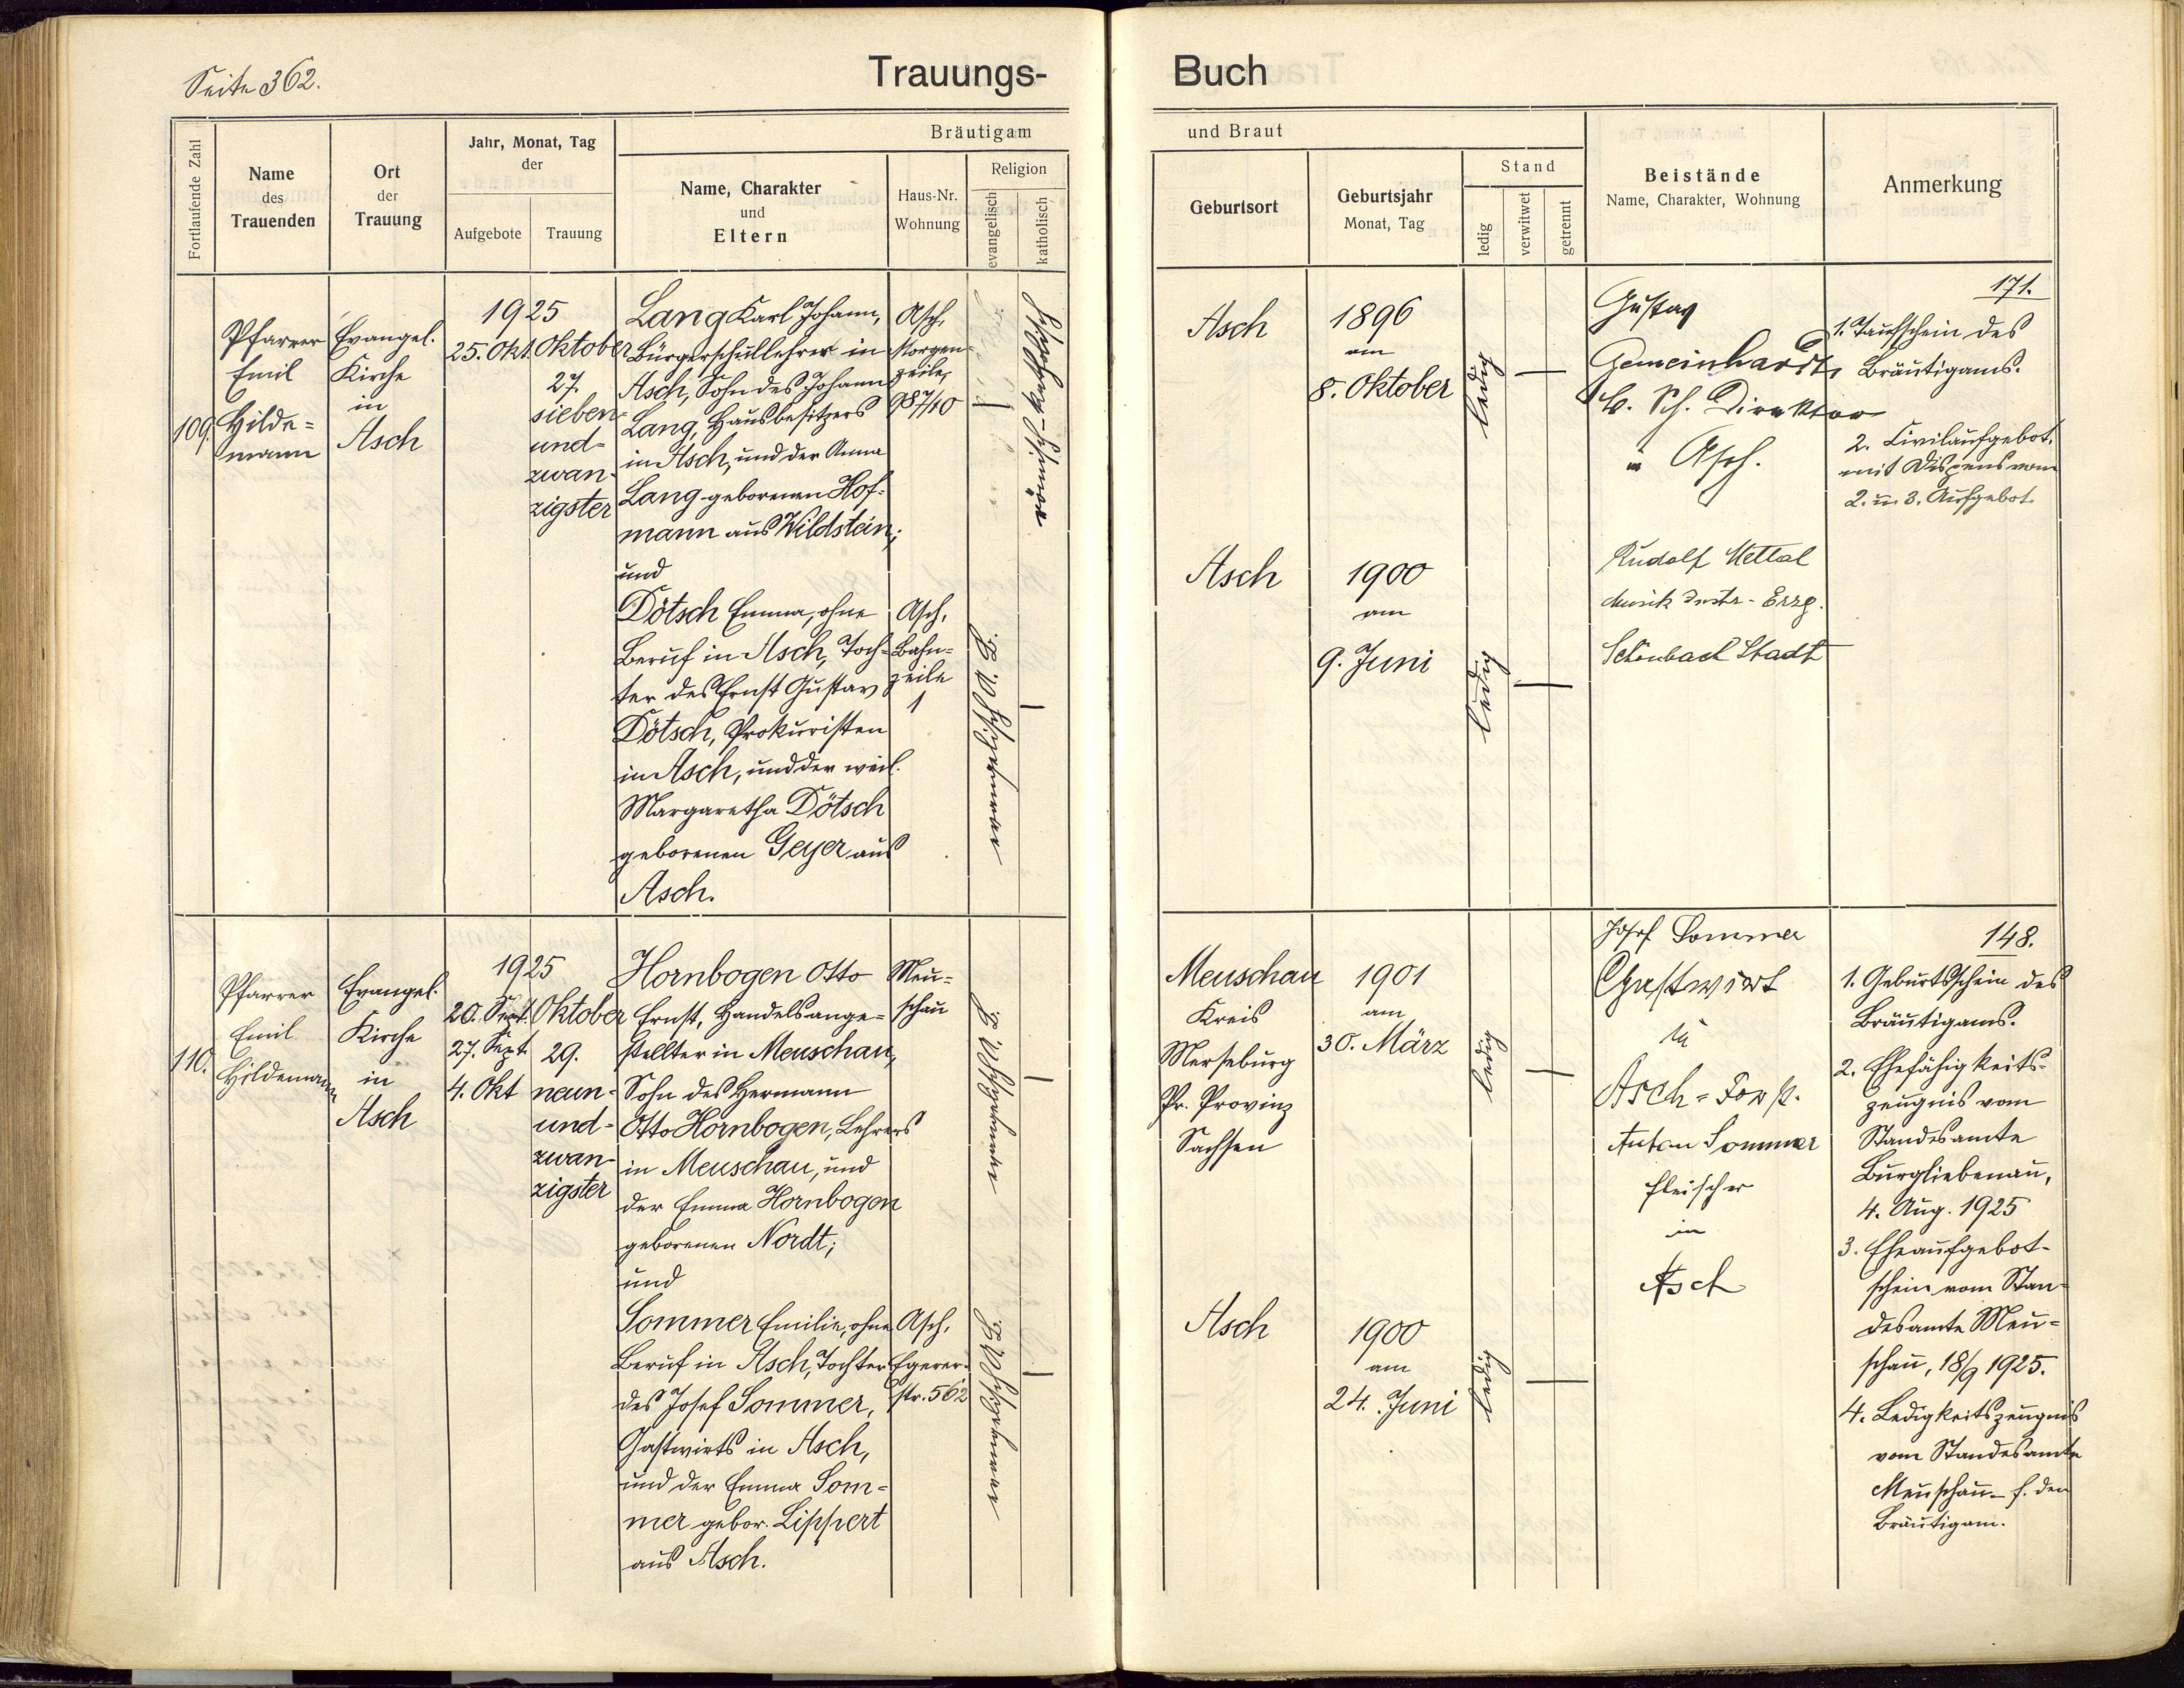 Seite 362.
Trauungs-
Buch
Fortlaufende Zahl
Name
des
Trauenden
Ort
der
Trauung
Jahr, Monat, Tag
der
Aufgebote
Trauung
Bräutigam
Name, Charakter
und
Eltern
Haus-Nr.
Wohnung
Religion
evangelisch
katholisch
und Braut
Geburtsort
Geburtsjahr
Monat, Tag
Stand
ledig
verwitwet
getrennt
Beistände
Name, Charakter, Wohnung
Anmerkung
109.
Pfarrer
Emil
Hilde=
mann
Evangel.
Kirche
in
Asch
1925
25. Okt.
Oktober
27.
sieben-
und-
zwan-
zigster
Lang Karl Johann,
Bürgerschullehrer in
Asch, Sohn des Johann
Lang, Hausbesitzers
in Asch, und der Anna
Lang geborenen Hof-
mann aus Wildstein;
und
Dötsch Emma, ohne
Beruf in Asch, Toch-
ter des Ernst Gustav
Dötsch, Prokuristen
in Asch, und der weil.
Margaretha Dötsch
geborenen Geyer aus
Asch.
Asch,
Morgen-
zeile,
987/10
römisch-katholisch
Asch,
Bahn-
zeile
1
evangelisch A. B.
Asch
1896
am
8. Oktober
ledig
Asch
1900
am
9. Juni
ledig
Gustav
Gemeinhardt,
B. Sch. Direktor
in Asch.
Rudolf Mettal
Musik Instr.-Erzg.
Schönbach Stadt
171.
1. Taufschein des
Bräutigams.
2. Civilaufgebot,
mit Dispens vom
2. u. 3. Aufgebot.
110.
Pfarrer
Emil
Hildemann
Evangel.
Kirche
in
Asch
1925
20. Sept.
27. Sept.
4. Okt
Oktober
29.
neun-
und-
zwan-
zigster
Hornbogen Otto
Ernst, Handelsange-
stellter in Meuschau,
Sohn des Hermann
Otto Hornbogen, Lehrers
in Meuschau, und
der Emma Hornbogen
geborenen Nordt;
und
Sommer Emilie, ohne
Beruf in Asch, Tochter
des Josef Sommer,
Gastwirts in Asch,
und der Emma Som-
mer gebor. Lippert
aus Asch.
Meu-
schau
evangelisch A. B.
Asch,
Egerer-
str. 562
evangelisch A. B.
Meuschau
Kreis
Merseburg
Pr. Provinz
Sachsen
1901
am
30. März
ledig
Asch
1900
am
24. Juni
ledig
Josef Sommer
Gastwirt
in
Asch=Forst.
Anton Sommer
Fleischer
in
Asch
148.
1. Geburtsschein des
Bräutigams.
2. Ehefähigkeits-
zeugnis vom
Standesamte
Burgliebenau,
4. Aug. 1925
3. Eheaufgebot-
schein vom Stan-
desamte Meu-
schau, 18/9 1925.
4. Ledigkeitszeugnis
vom Standesamte
Meuschau f. den
Bräutigam.